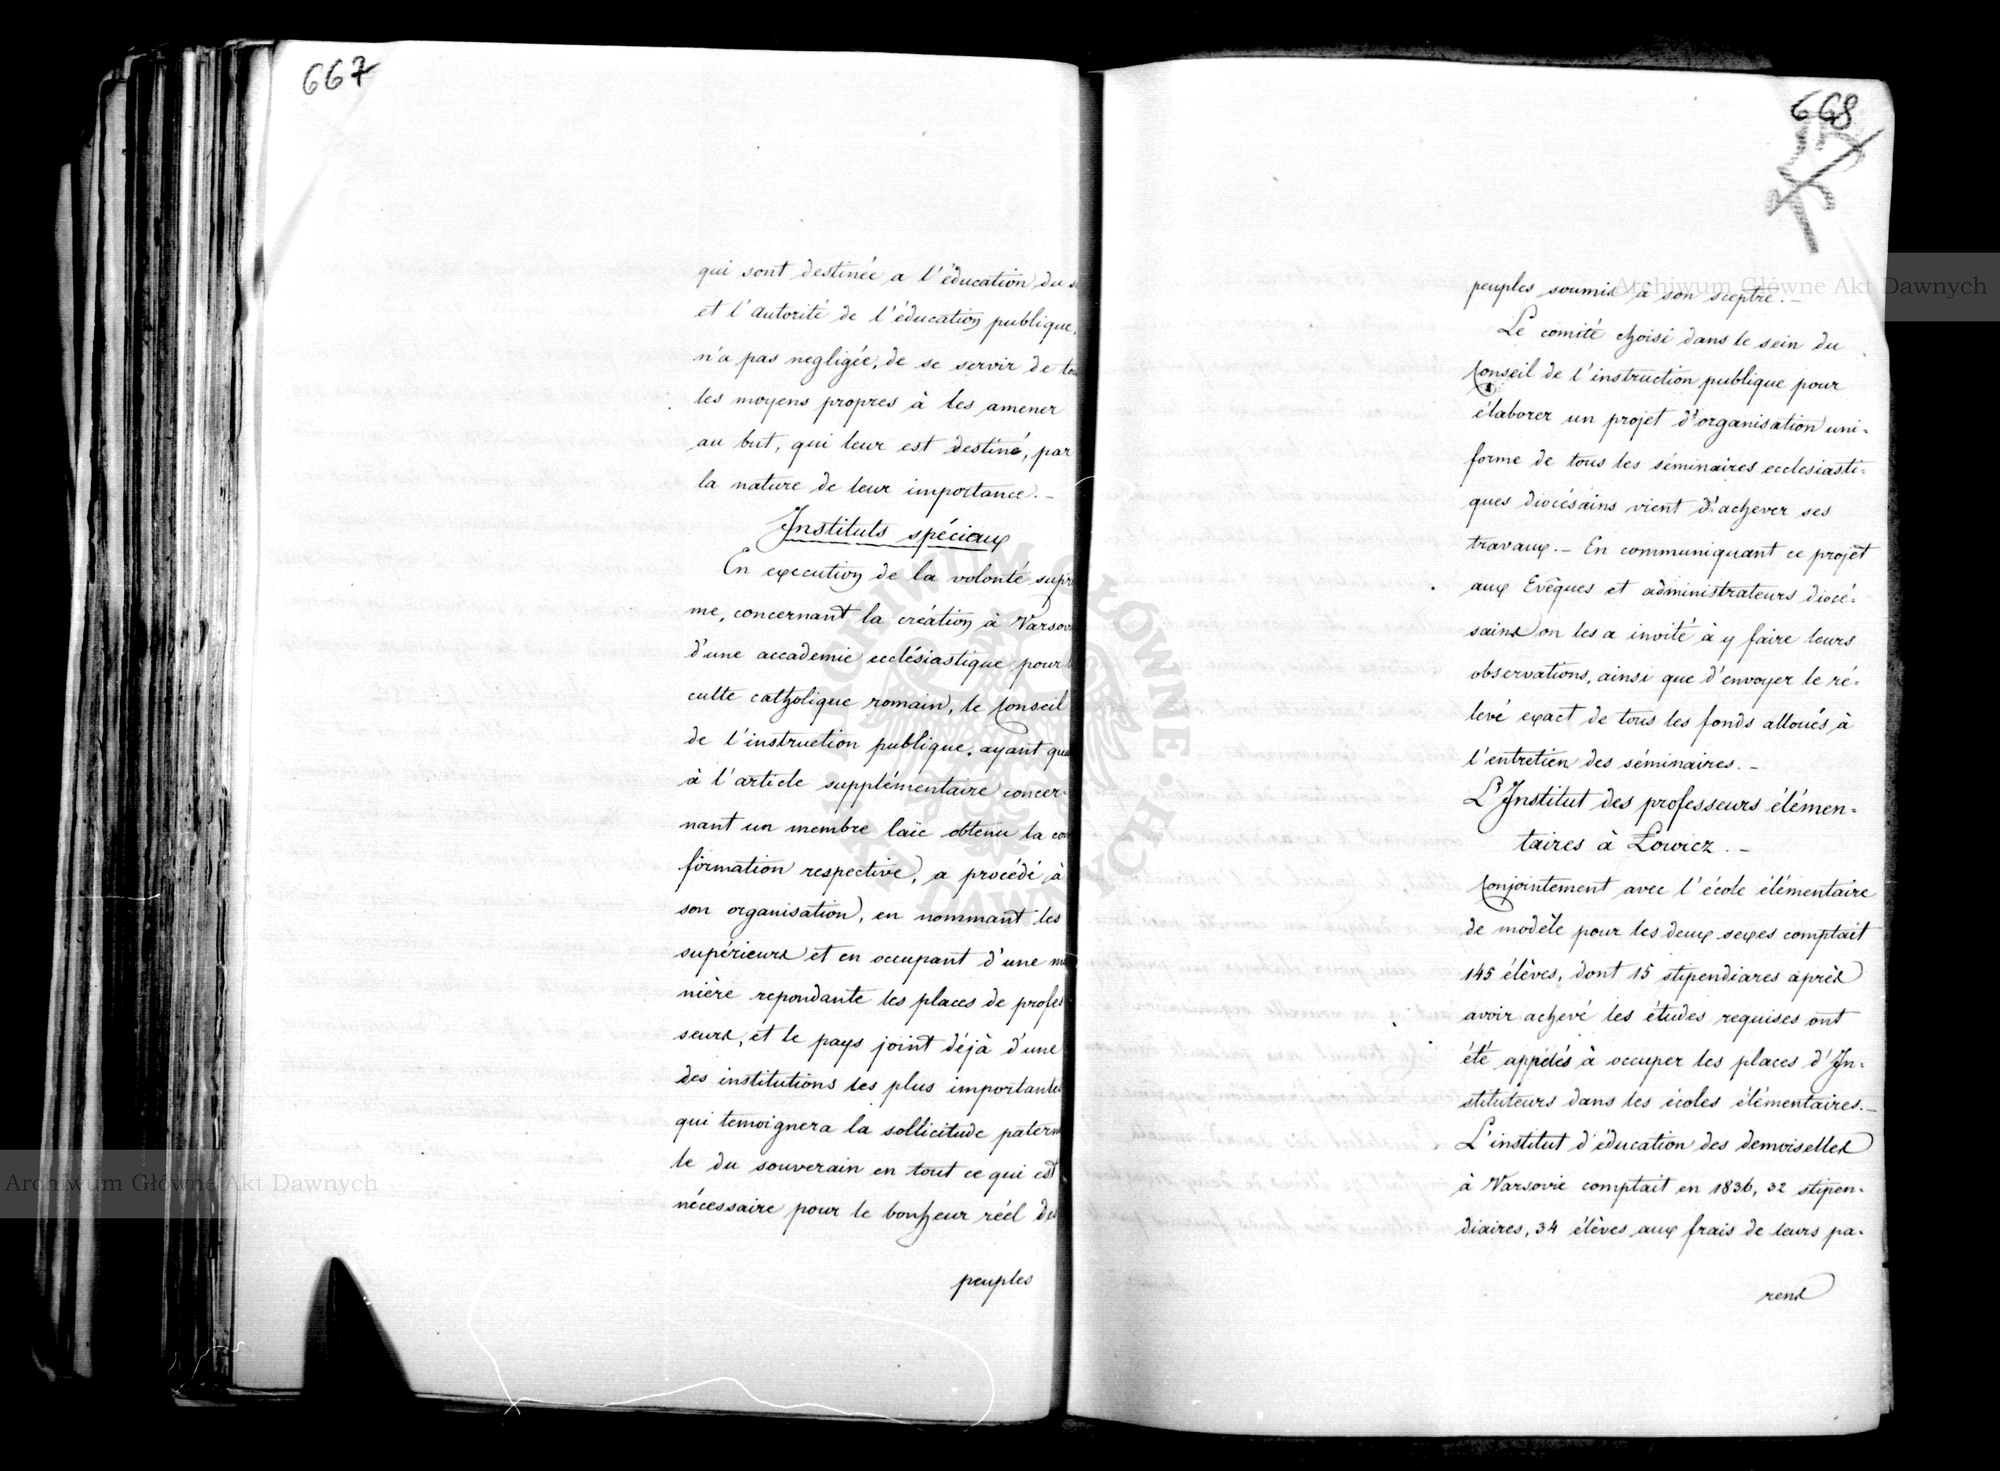 667
qui sont destinée a l'éducation du
et l'autorité de l'éducation publique,
n'a pas negligée, de se servir de
les moyens propres à les amener
au but, qui leur est destiné, par
la nature de leur importance. –
Instituts spéciaux
En execution de la volonté suprê
me, concernant la création à Varsov
d'une accademie ecclésiastique pour
culte catholique romain, le Conseil
de l'instruction publique, ayant qua
à l'article supplémentaire concer-
nant un membre laïc obtenu la con
firmation respective, a procédé à
son organisation, en nommant les
supérieurs et en occupant d'une ma
nière repondante les places de profes
seurs, et le pays joint déjà d'une
des institutions les plus importantes
qui temoignera la sollicitude patern
le du souverain en tout ce qui est
nécessaire pour le bonheur réel des
peuples
668
peuples soumis à son sceptre. –
Le comité choisi dans le sein du
Conseil de l'instruction publique pour
élaborer un projet d'organisation uni-
forme de tous les séminaires ecclesiasti-
ques diocésains vient d'achever ses
travaux. – En communiquant ce projet
aux Evêques et administrateurs diocé-
sains on les a invité à y faire leurs
observations, ainsi que d'envoyer le ré-
levé exact de tous les fonds alloués à
l'entretien des séminaires. –
L'Institut des professeurs élémen-
taires à Lowicz. –
Conjointement avec l'école élémentaire
de modèle pour les deux sexes comptait
145 élèves, dont 15 stipendiares après
avoir achevé les études requises ont
été appelés à occuper les places d'In-
stituteurs dans les écoles élémentaires. –
L'institut d'éducation des demoiselles
à Varsovie comptait en 1836, 32 stipen-
diaires, 34 élèves aux frais de leurs pa-
rens
Archiwum Główne Akt Dawnych
Archiwum Główne Akt Dawnych
ARCHIWUM GŁÓWNE AKT DAWNYCH